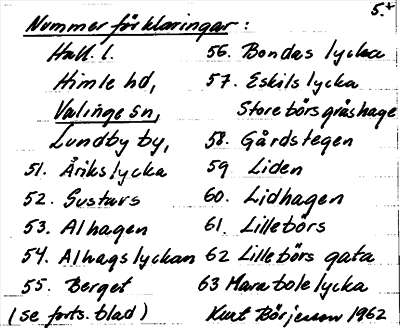 5.+
Nummerförklaringar:
Hall. l.
Himle hd,
Valinge sn,
Lundby by,
51. Årikslycka
52. Gustavs
53. Alhagen
54. Alhagslyckan
55. Berget
(se forts. blad)
56. Bondas lycka
57. Eskils lycka
Storebörsgråshage
58. Gårdstegen
59 Liden
60. Lidhagen
61. Lillebörs
62 Lillebörs gata
63 Marabolelycka
Kurt Börjesson 1962